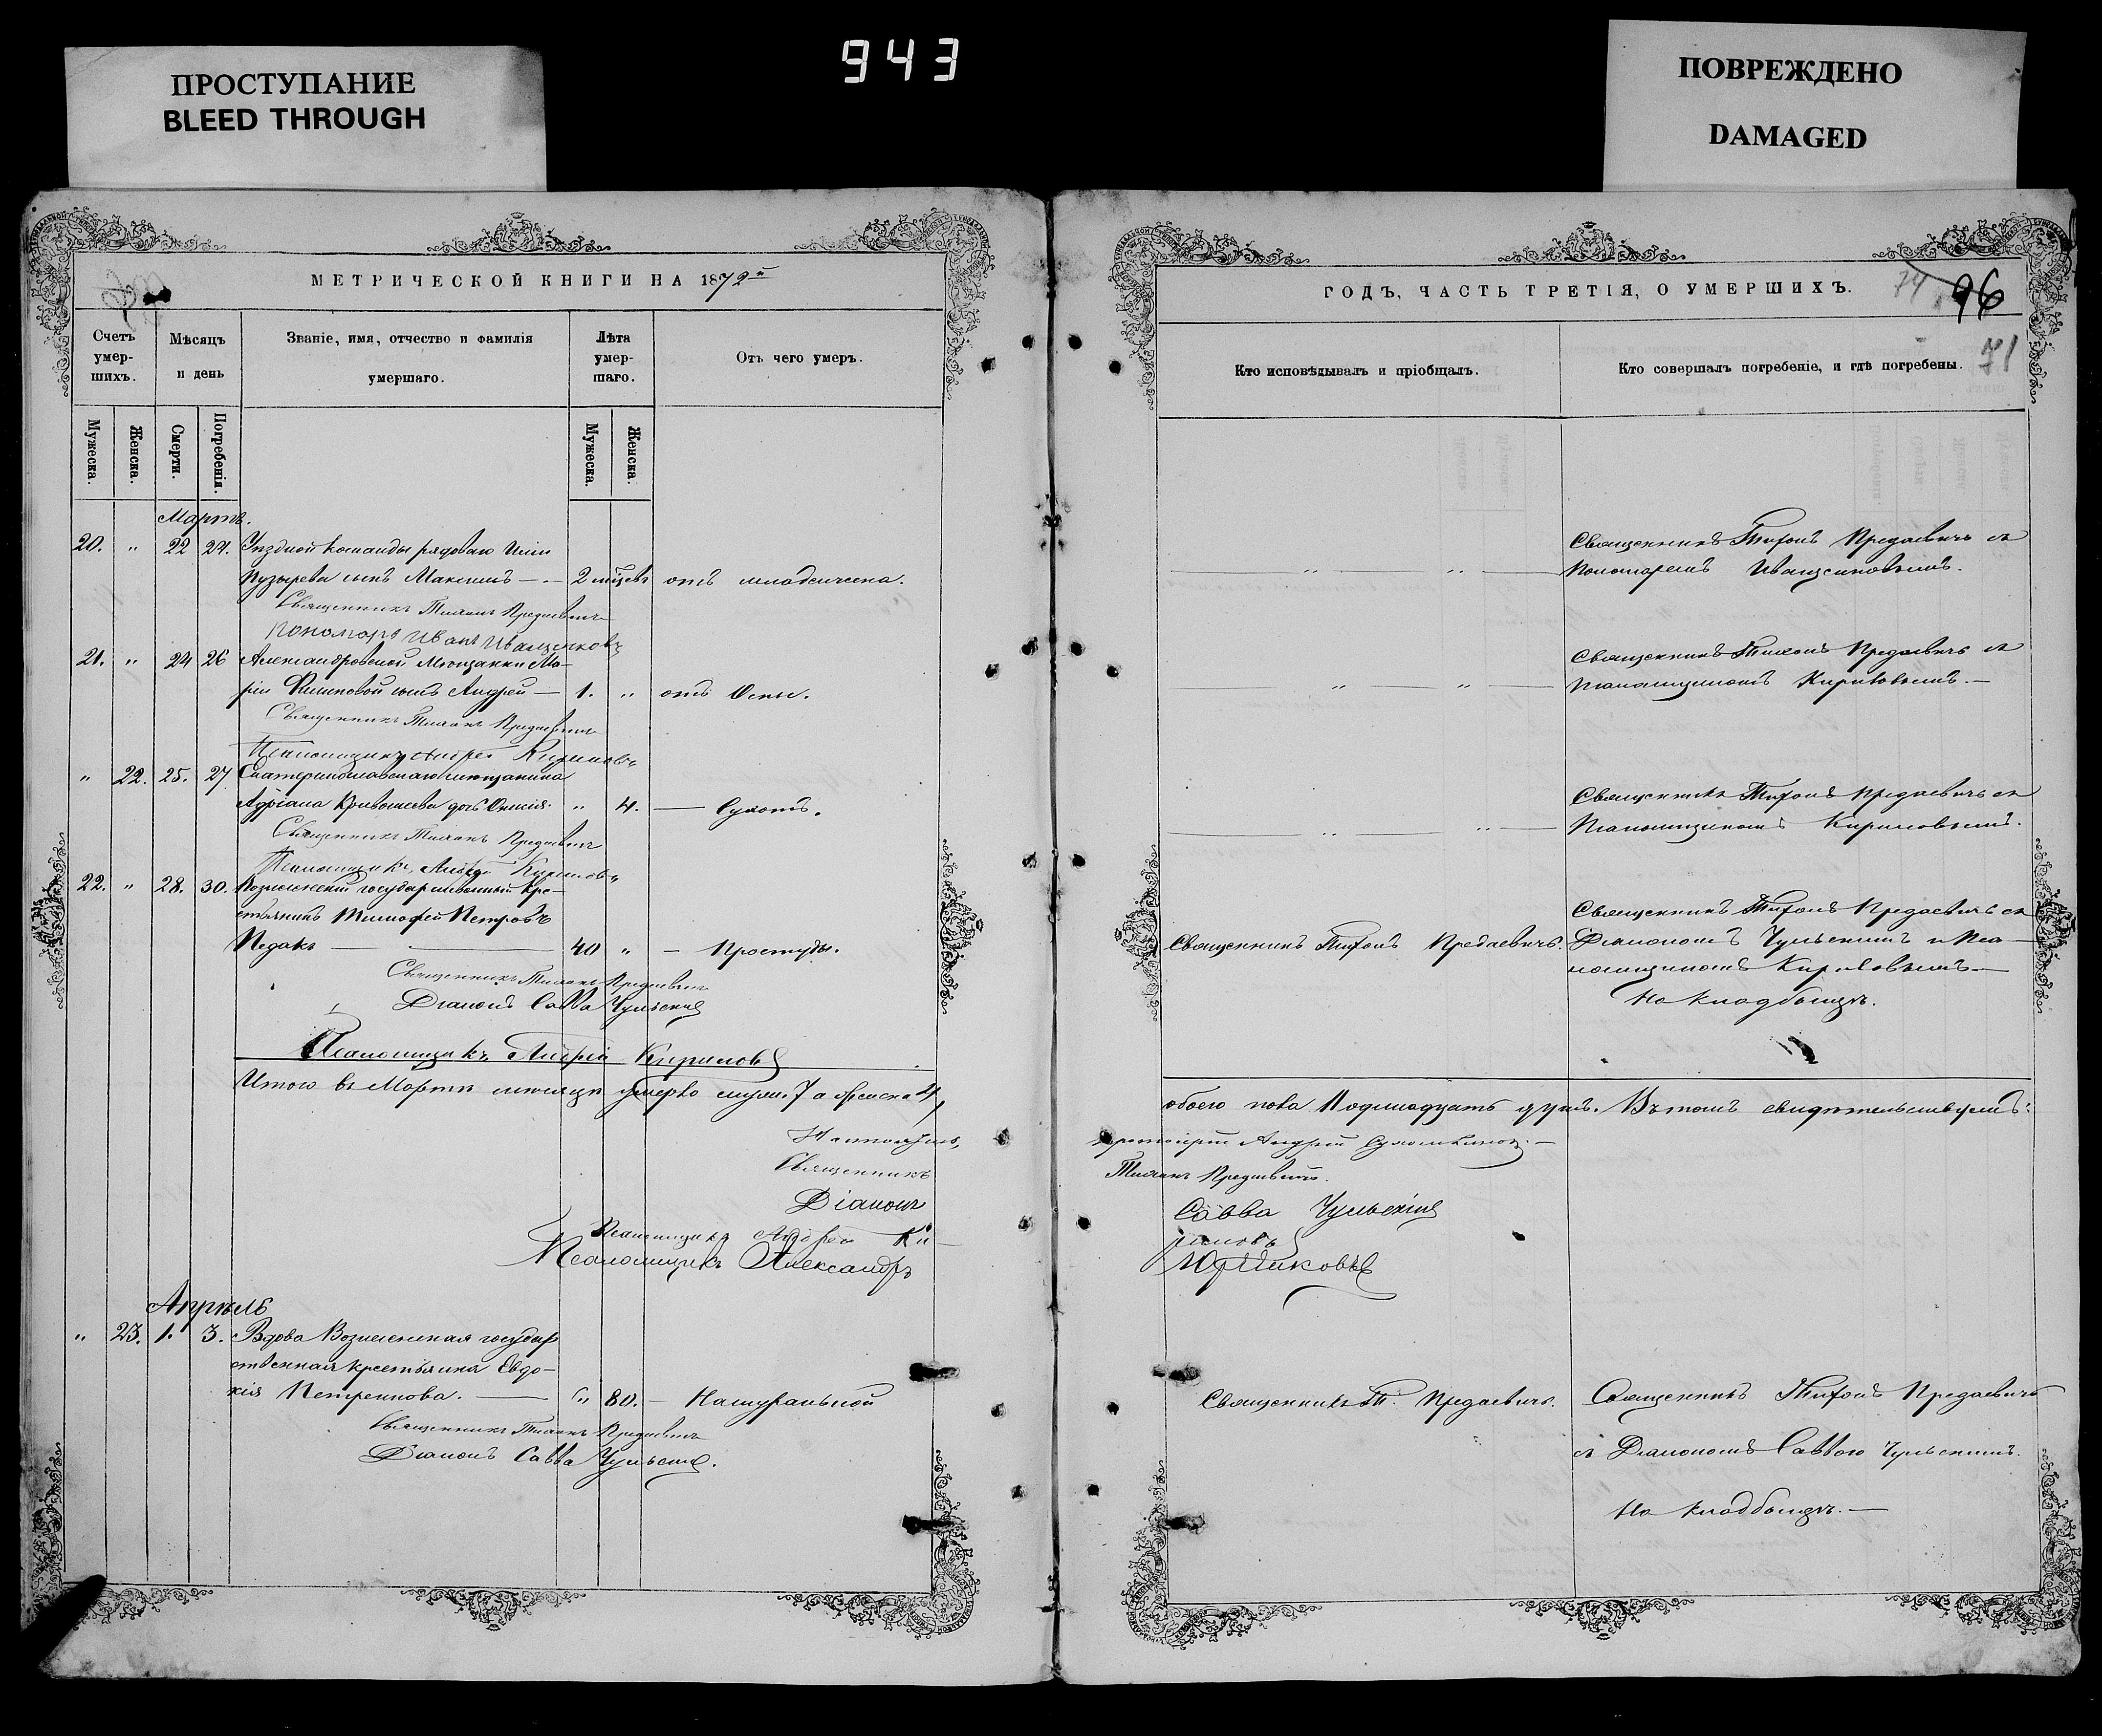 943
ПРОСТУПАНИЕ
BLEED THROUGH
ПОВРЕЖДЕНО
DAMAGED
МЕТРИЧЕСКОЙ КНИГИ НА 1872й
Счетъ умер-шихъ.
Мѣсяцъ и день
Званіе, имя, отчество и фамилія умершаго.
Лѣта умер-шаго.
Отъ чего умеръ.
Мужеска.
Женска.
Смерти.
Погребенія.
Мужеска.
Женска.
Мартъ.
20. " 22 24. Уѣздной команды рядоваго
Пузырева сынъ Максимъ — 2 отъ младенчена.
Священникъ Тихонъ Предаевичъ
Пономарь Иванъ Иващенковъ
21. " 24 26 Александровской Мѣщанки Ма-
ріи сынъ Андрей — 1. " отъ Оспы.
Священникъ Тихонъ Предаевичъ
Псаломщикъ Андрей Кириловъ
" 22. 25. 27 Екатеринославскаго мѣщанина
Адріана дочь " 4. — Сухотъ.
Священникъ Тихонъ Предаевичъ
Псаломщикъ Андрей Кириловъ
22. " 28. 30. государственный кре-
стьянинъ Тимофей Петровъ
Педакъ — 40 " — Простуды.
Священникъ Тихонъ Предаевичъ
Діаконъ Савва Чульскій
Псаломщикъ Андрей Кириловъ
Итого въ Мартѣ мѣсяцѣ умерло мужес. 7 а женска 4,
Священникъ
Діаконъ
Псаломщикъ Андрей Ки-
Псаломщикъ Александръ
Апрѣль
" 23. 1. 3. Вдова Вознесенская государ
ственная крестьянка Евдо-
кія Петренкова. — " 80. — Натуральной
Священникъ Тихонъ Предаевичъ
Діаконъ Савва Чульскій.
ГОДЪ, ЧАСТЬ ТРЕТІЯ, О УМЕРШИХЪ.
74
96
71
Кто исповѣдывалъ и пріобщалъ.
Кто совершалъ погребеніе, и гдѣ погребены.
Священникъ Тихонъ Предаевичъ съ
Пономаремъ Иващенковымъ.
Священникъ Тихонъ Предаевичъ съ
Псаломщикомъ Кириловымъ. —
Священникъ Тихонъ Предаевичъ съ
Псаломщикомъ Кириловымъ.
Священникъ Тихонъ Предаевичъ съ
Священникъ Тихонъ Предаевичъ. Діакономъ Чульскимъ и Пса-
ломщикомъ Кириловымъ —
На кладбищѣ.
обоего пола Одинадцать душъ. Въ томъ свидѣтельствуемъ:
Протоіерей Андрей
Тихонъ Предаевичъ.
Савва Чульскій
риловъ
Священникъ Т. Предаевичъ. Священникъ Тихонъ Предаевичъ
съ Діакономъ Саввою Чульскимъ.
На кладбищѣ. —